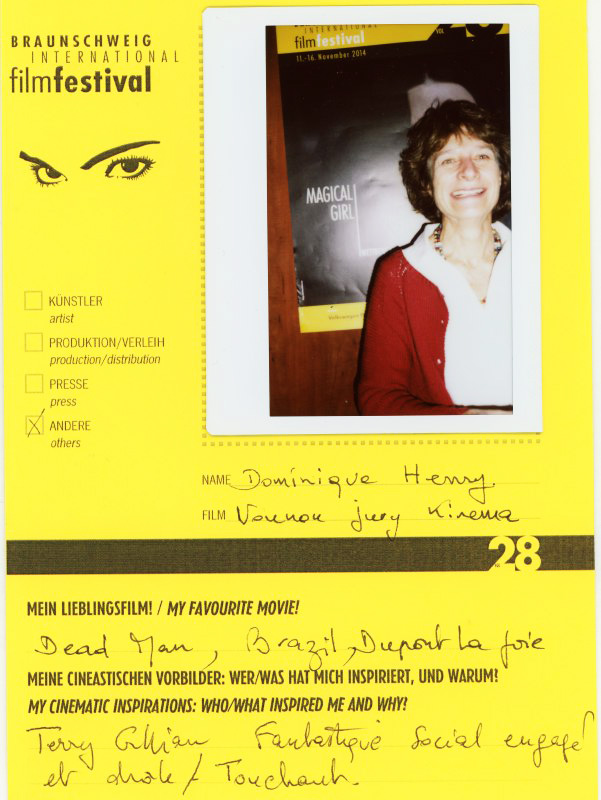 BRAUNSCHWEIG
INTERNATIONAL
filmfestival
INTERNATIONAL
filmfestival
VOL
28
11.-16. November 2014
MAGICAL
GIRL
Volkswagen
KÜNSTLER
artist
PRODUKTION/VERLEIH
production/distribution
PRESSE
press
X ANDERE
others
NAME Dominique Henry
FILM jury Kinema
28
MEIN LIEBLINGSFILM! / MY FAVOURITE MOVIE!
Dead Man, Brazil, Dupont La joie
MEINE CINEASTISCHEN VORBILDER: WER/WAS HAT MICH INSPIRIERT, UND WARUM!
MY CINEMATIC INSPIRATIONS: WHO/WHAT INSPIRED ME AND WHY!
Terry Gilliam Fantastique Social engagé
et drôle / Touchant.